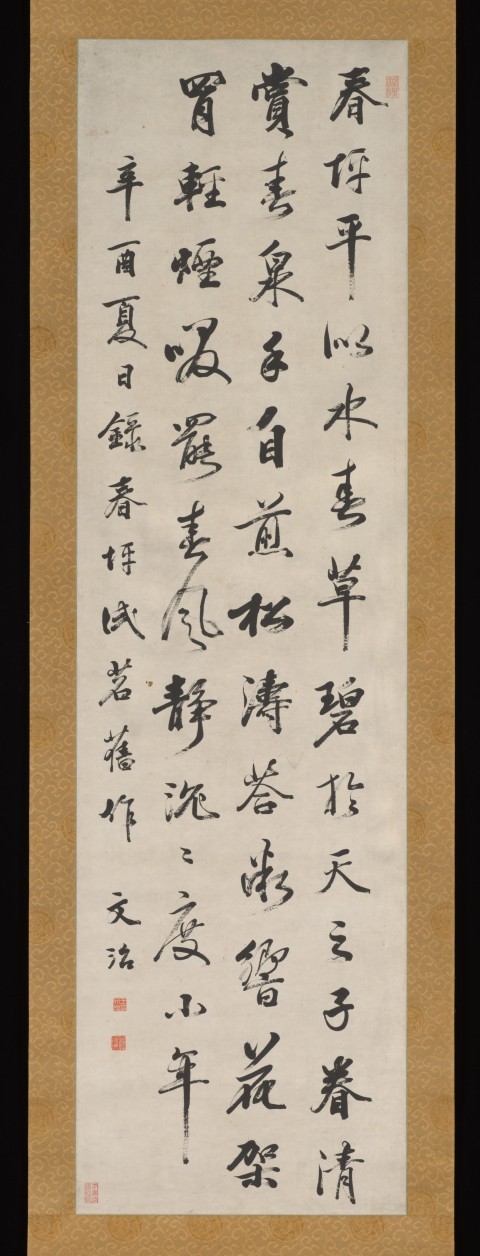 春坪平似水春草碧於天之子眷清
賞春泉手自煎松濤答響花架
罥輕煙啜罷春風靜沉〻度小年
辛酉夏日錄春坪試茗舊作 文治